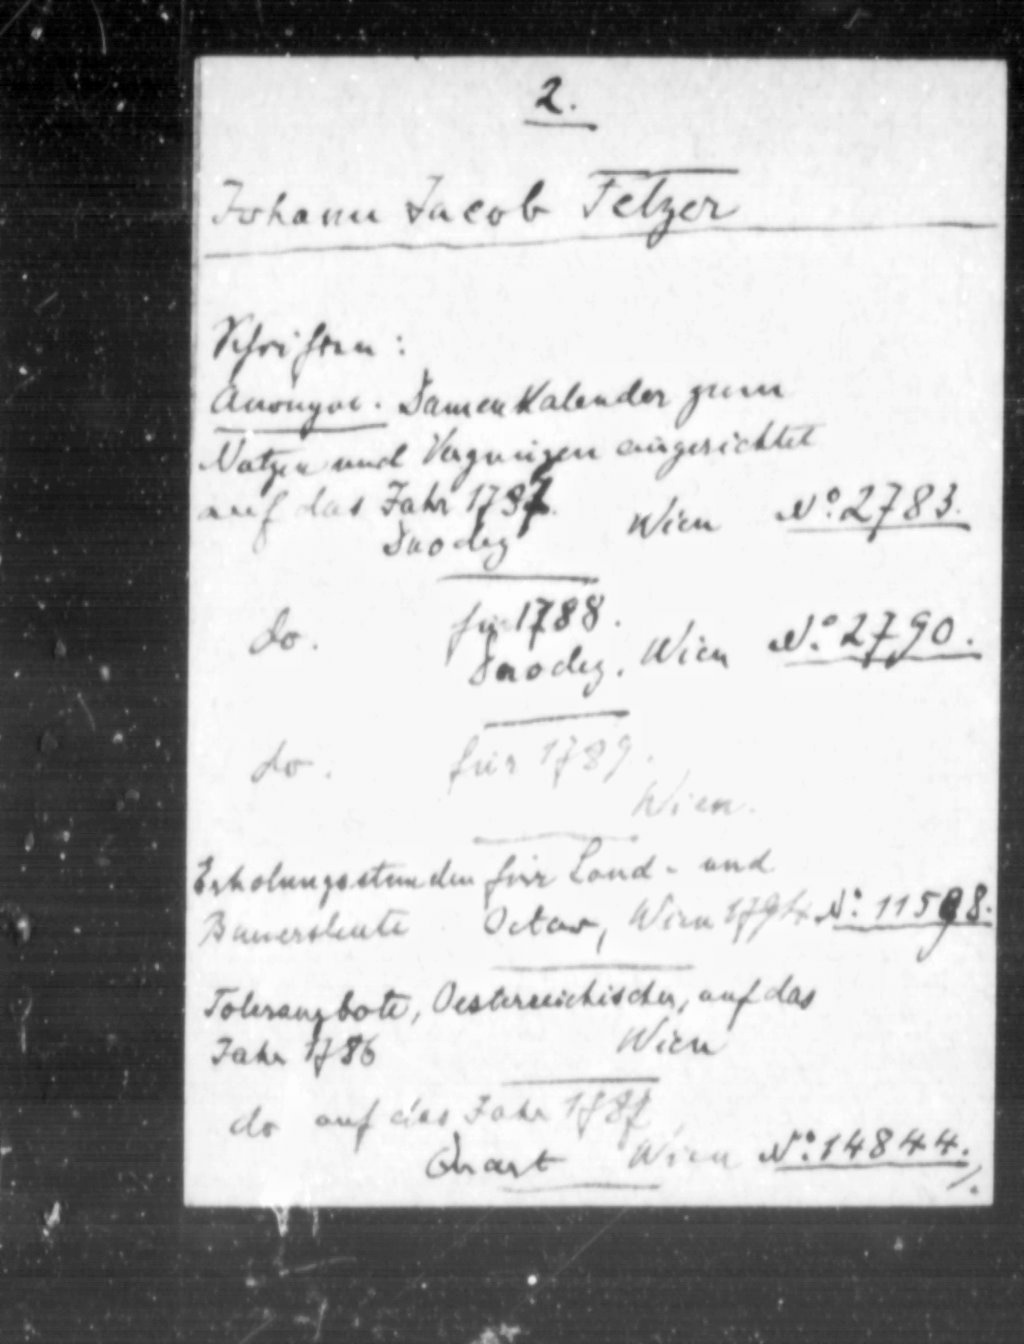 2.
Johann Jacob Fetzer
Schriften:
Anonym. Damenkalender zum
Nutzen und Vergnügen eingerichtet
auf das Jahr 1787. Wien No. 2783.
Duodez
do. für 1788.
Duodez. Wien No. 2790.
do. für 1789.
Wien.
Erholungsstunden für Land- und
Bauersleute Octav, Wien 1794. No. 11598.
Toleranzbote, Oesterreichischer, auf das
Jahr 1786 Wien
do auf das Jahr 1787
Quart Wien No. 14844.